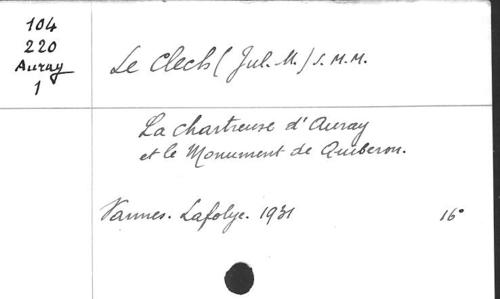 104
220
Auray
1
Le Clech (Jul. M.) S. M. M.
La chartreuse d'Auray
et le Monument de Quiberon.
Vannes. Lafolye. 1931 16°